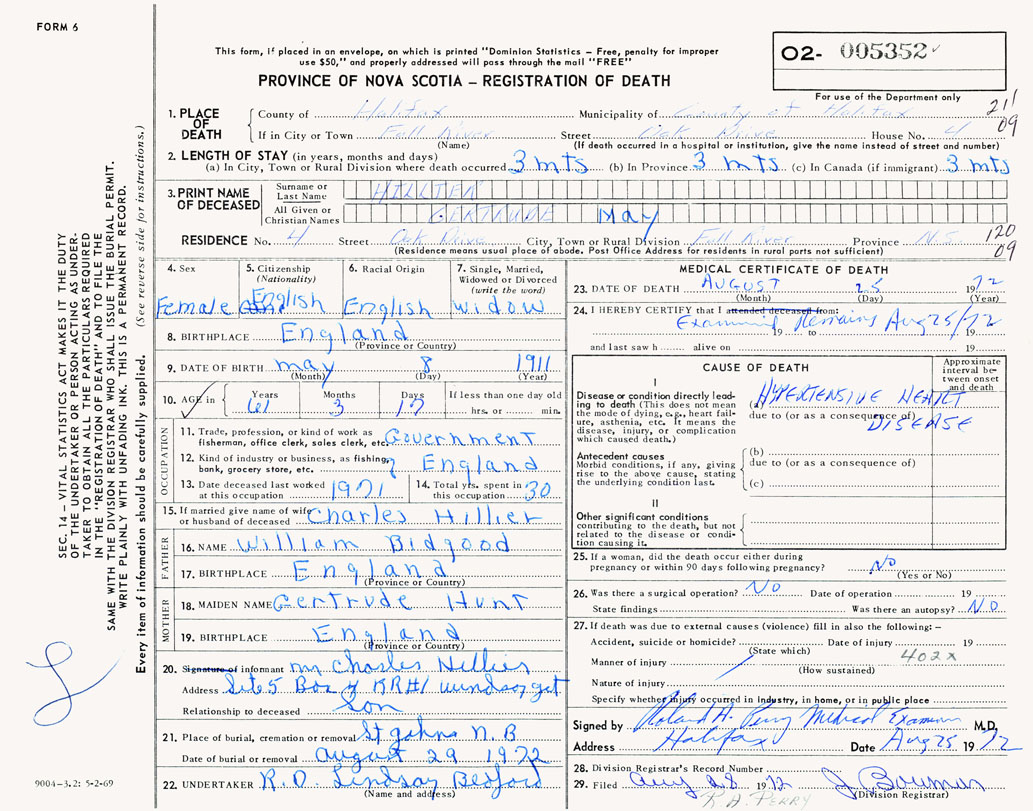 FORM 6
This form, if placed in an envelope, on which is printed "Dominion Statistics – Free, penalty for improper
use $50," and properly addressed will pass through the mail "FREE"
PROVINCE OF NOVA SCOTIA – REGISTRATION OF DEATH
O2- 005352
For use of the Department only
211
09
1. PLACE OF DEATH
County of Halifax Municipality of County of Halifax
If in City or Town Fall River Street Oak Drive House No. 4
(Name) (If death occurred in a hospital or institution, give the name instead of street and number)
2. LENGTH OF STAY (in years, months and days)
(a) In City, Town or Rural Division where death occurred 3 mts (b) In Province 3 mts (c) In Canada (if immigrant) 3 mts
3. PRINT NAME OF DECEASED
Surname or Last Name HILLIER
All Given or Christian Names GERTRUDE May
RESIDENCE No. 4 Street Oak Drive City, Town or Rural Division Fall River Province N.S.
(Residence means usual place of abode. Post Office Address for residents in rural parts not sufficient)
120
09
4. Sex
Female
5. Citizenship
(Nationality)
English
6. Racial Origin
English
7. Single, Married,
Widowed or Divorced
(write the word)
Widow
8. BIRTHPLACE England
(Province or Country)
9. DATE OF BIRTH may 8 1911
(Month) (Day) (Year)
10. AGE in
Years Months Days If less than one day old
61 3 17 hrs. or min.
OCCUPATION
11. Trade, profession, or kind of work as
fisherman, office clerk, sales clerk, etc. Government
12. Kind of industry or business, as fishing,
bank, grocery store, etc. England
13. Date deceased last worked
at this occupation 1971
14. Total yrs. spent in
this occupation 30
15. If married give name of wife
or husband of deceased Charles Hillier
FATHER
16. NAME William Bidgood
17. BIRTHPLACE England
(Province or Country)
MOTHER
18. MAIDEN NAME Gertrude Hunt
19. BIRTHPLACE England
(Province or Country)
20. Signature of informant mr Charles Hillier
Address Site 5 Box RR#1 windsor
Relationship to deceased Son
21. Place of burial, cremation or removal St johns N.B
Date of burial or removal august 29 1972
22. UNDERTAKER R.D. Lindsay Bedford
(Name and address)
MEDICAL CERTIFICATE OF DEATH
23. DATE OF DEATH AUGUST 25 1972
(Month) (Day) (Year)
24. I HEREBY CERTIFY that I attended deceased from:
Examined Remains Aug 25/72
19 to 19
and last saw h alive on 19
CAUSE OF DEATH
Approximate
interval be-
tween onset
and death
I
Disease or condition directly lead-
ing to death (This does not mean
the mode of dying, e.g., heart fail-
ure, asthenia, etc. It means the
disease, injury, or complication
which caused death.)
(a) HYPERTENSIVE HEART
due to (or as a consequence of)
DISEASE
Antecedent causes
Morbid conditions, if any, giving
rise to the above cause, stating
the underlying condition last.
(b)
due to (or as a consequence of)
(c)
II
Other significant conditions
contributing to the death, but not
related to the disease or condi-
tion causing it.
25. If a woman, did the death occur either during
pregnancy or within 90 days following pregnancy? No
(Yes or No)
26. Was there a surgical operation? NO Date of operation 19
State findings Was there an autopsy? NO
27. If death was due to external causes (violence) fill in also the following: –
Accident, suicide or homicide? Date of injury 19
(State which)
402X
Manner of injury
(How sustained)
Nature of injury
Specify whether injury occurred in industry, in home, or in public place
Signed by Roland H. Perry Medical Examiner M.D.
Address Halifax Date Aug 25 1972
28. Division Registrar's Record Number
29. Filed Aug 28 1972
(Division Registrar)
R.H. PERRY
SEC. 14 – VITAL STATISTICS ACT MAKES IT THE DUTY
OF THE UNDERTAKER OR PERSON ACTING AS UNDER-
TAKER TO OBTAIN ALL THE PARTICULARS REQUIRED
IN THE "REGISTRATION OF DEATH" AND TO FILE THE
SAME WITH THE DIVISION REGISTRAR WHO SHALL ISSUE THE BURIAL PERMIT.
WRITE PLAINLY WITH UNFADING INK. THIS IS A PERMANENT RECORD.
Every item of information should be carefully supplied. (See reverse side for instructions.)
9004-3.2: 5-2-69